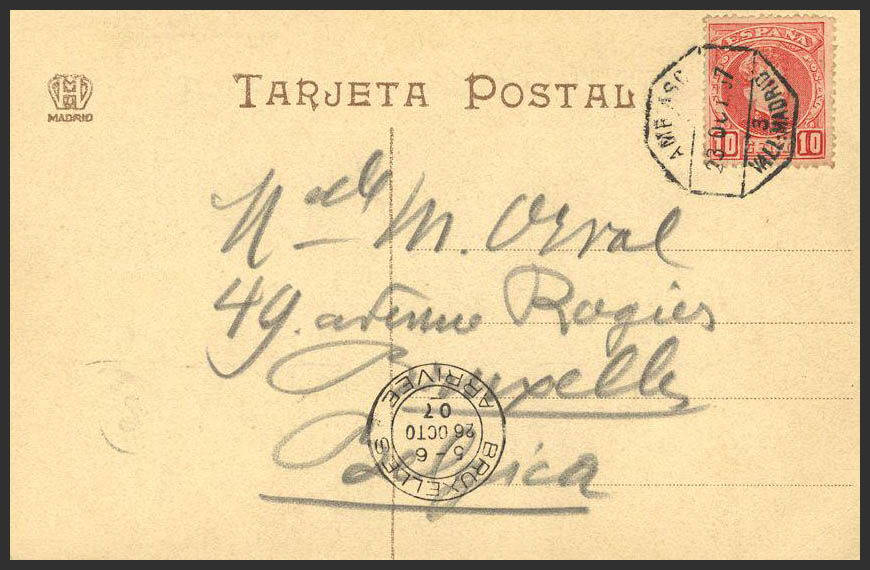 TARJETA POSTAL
MADRID
ESPAÑA
10 10
AMB ASC
23 OCT 07
3
VALL-MADRID
M. Orval
49. avenue Rogier
Bruxelles
Belgica
BRUXELLES
5-6
26 OCTO
07
ARRIVEE